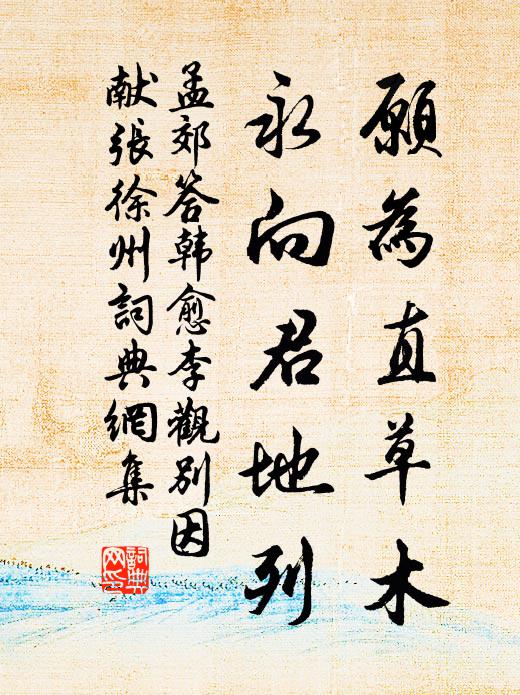 願為直草木
永向君地列
孟郊答韩愈李觀別因
献張徐州詞典網集
詞典网